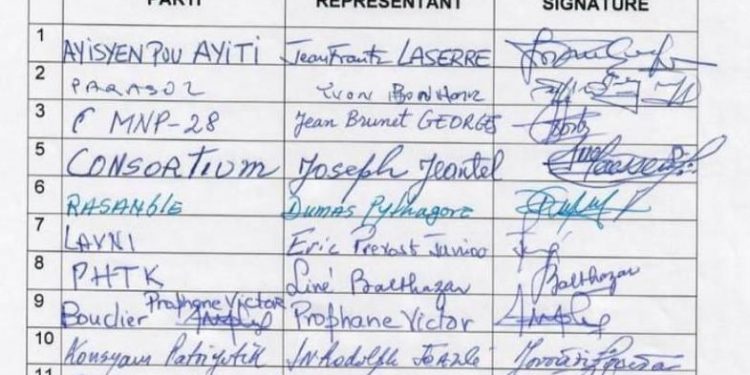 PARTI REPRESENTANT SIGNATURE
1 AYISYEN POU AYITI Jean Frantz LASERRE
2 PARASOL Yvon BONHOMME
3 MNP-28 Jean Brunet GEORGES
5 CONSORTIUM Joseph Jeantel
6 RASANBLE Dumas Pythagore
7 LAVNI Eric Prevost Junior
8 PHTK Liné Balthazar Balthazar
9 Bouclier Prophane Victor Prophane Victor
10 Konsyans Patriyotik
11